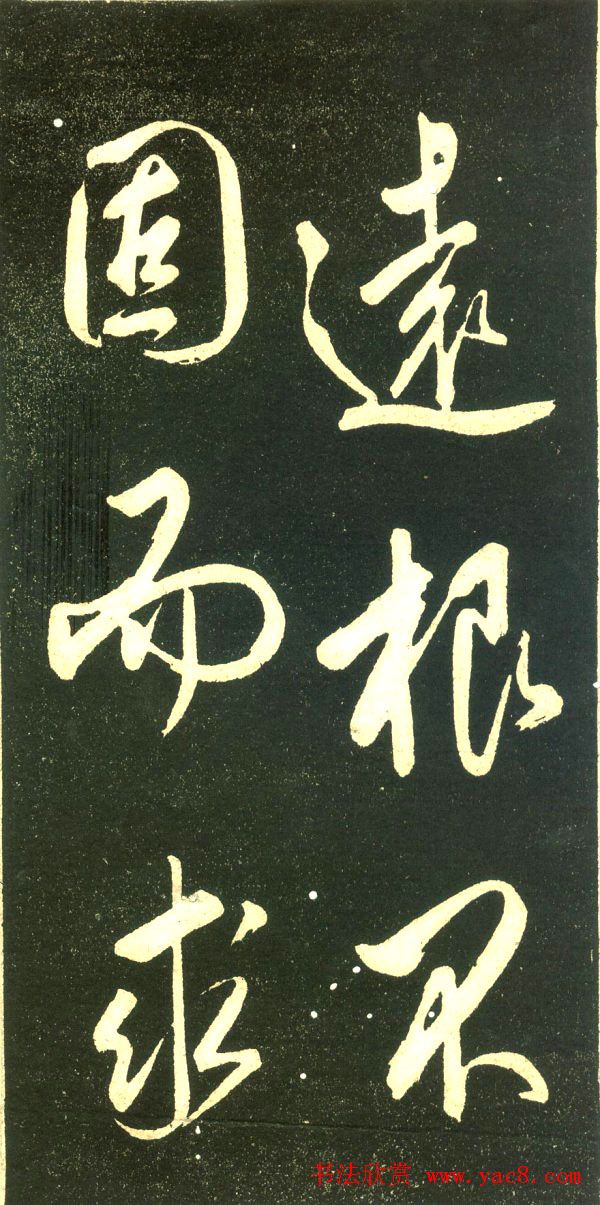 遠根不
固而求
书法欣赏 www.yac8.com